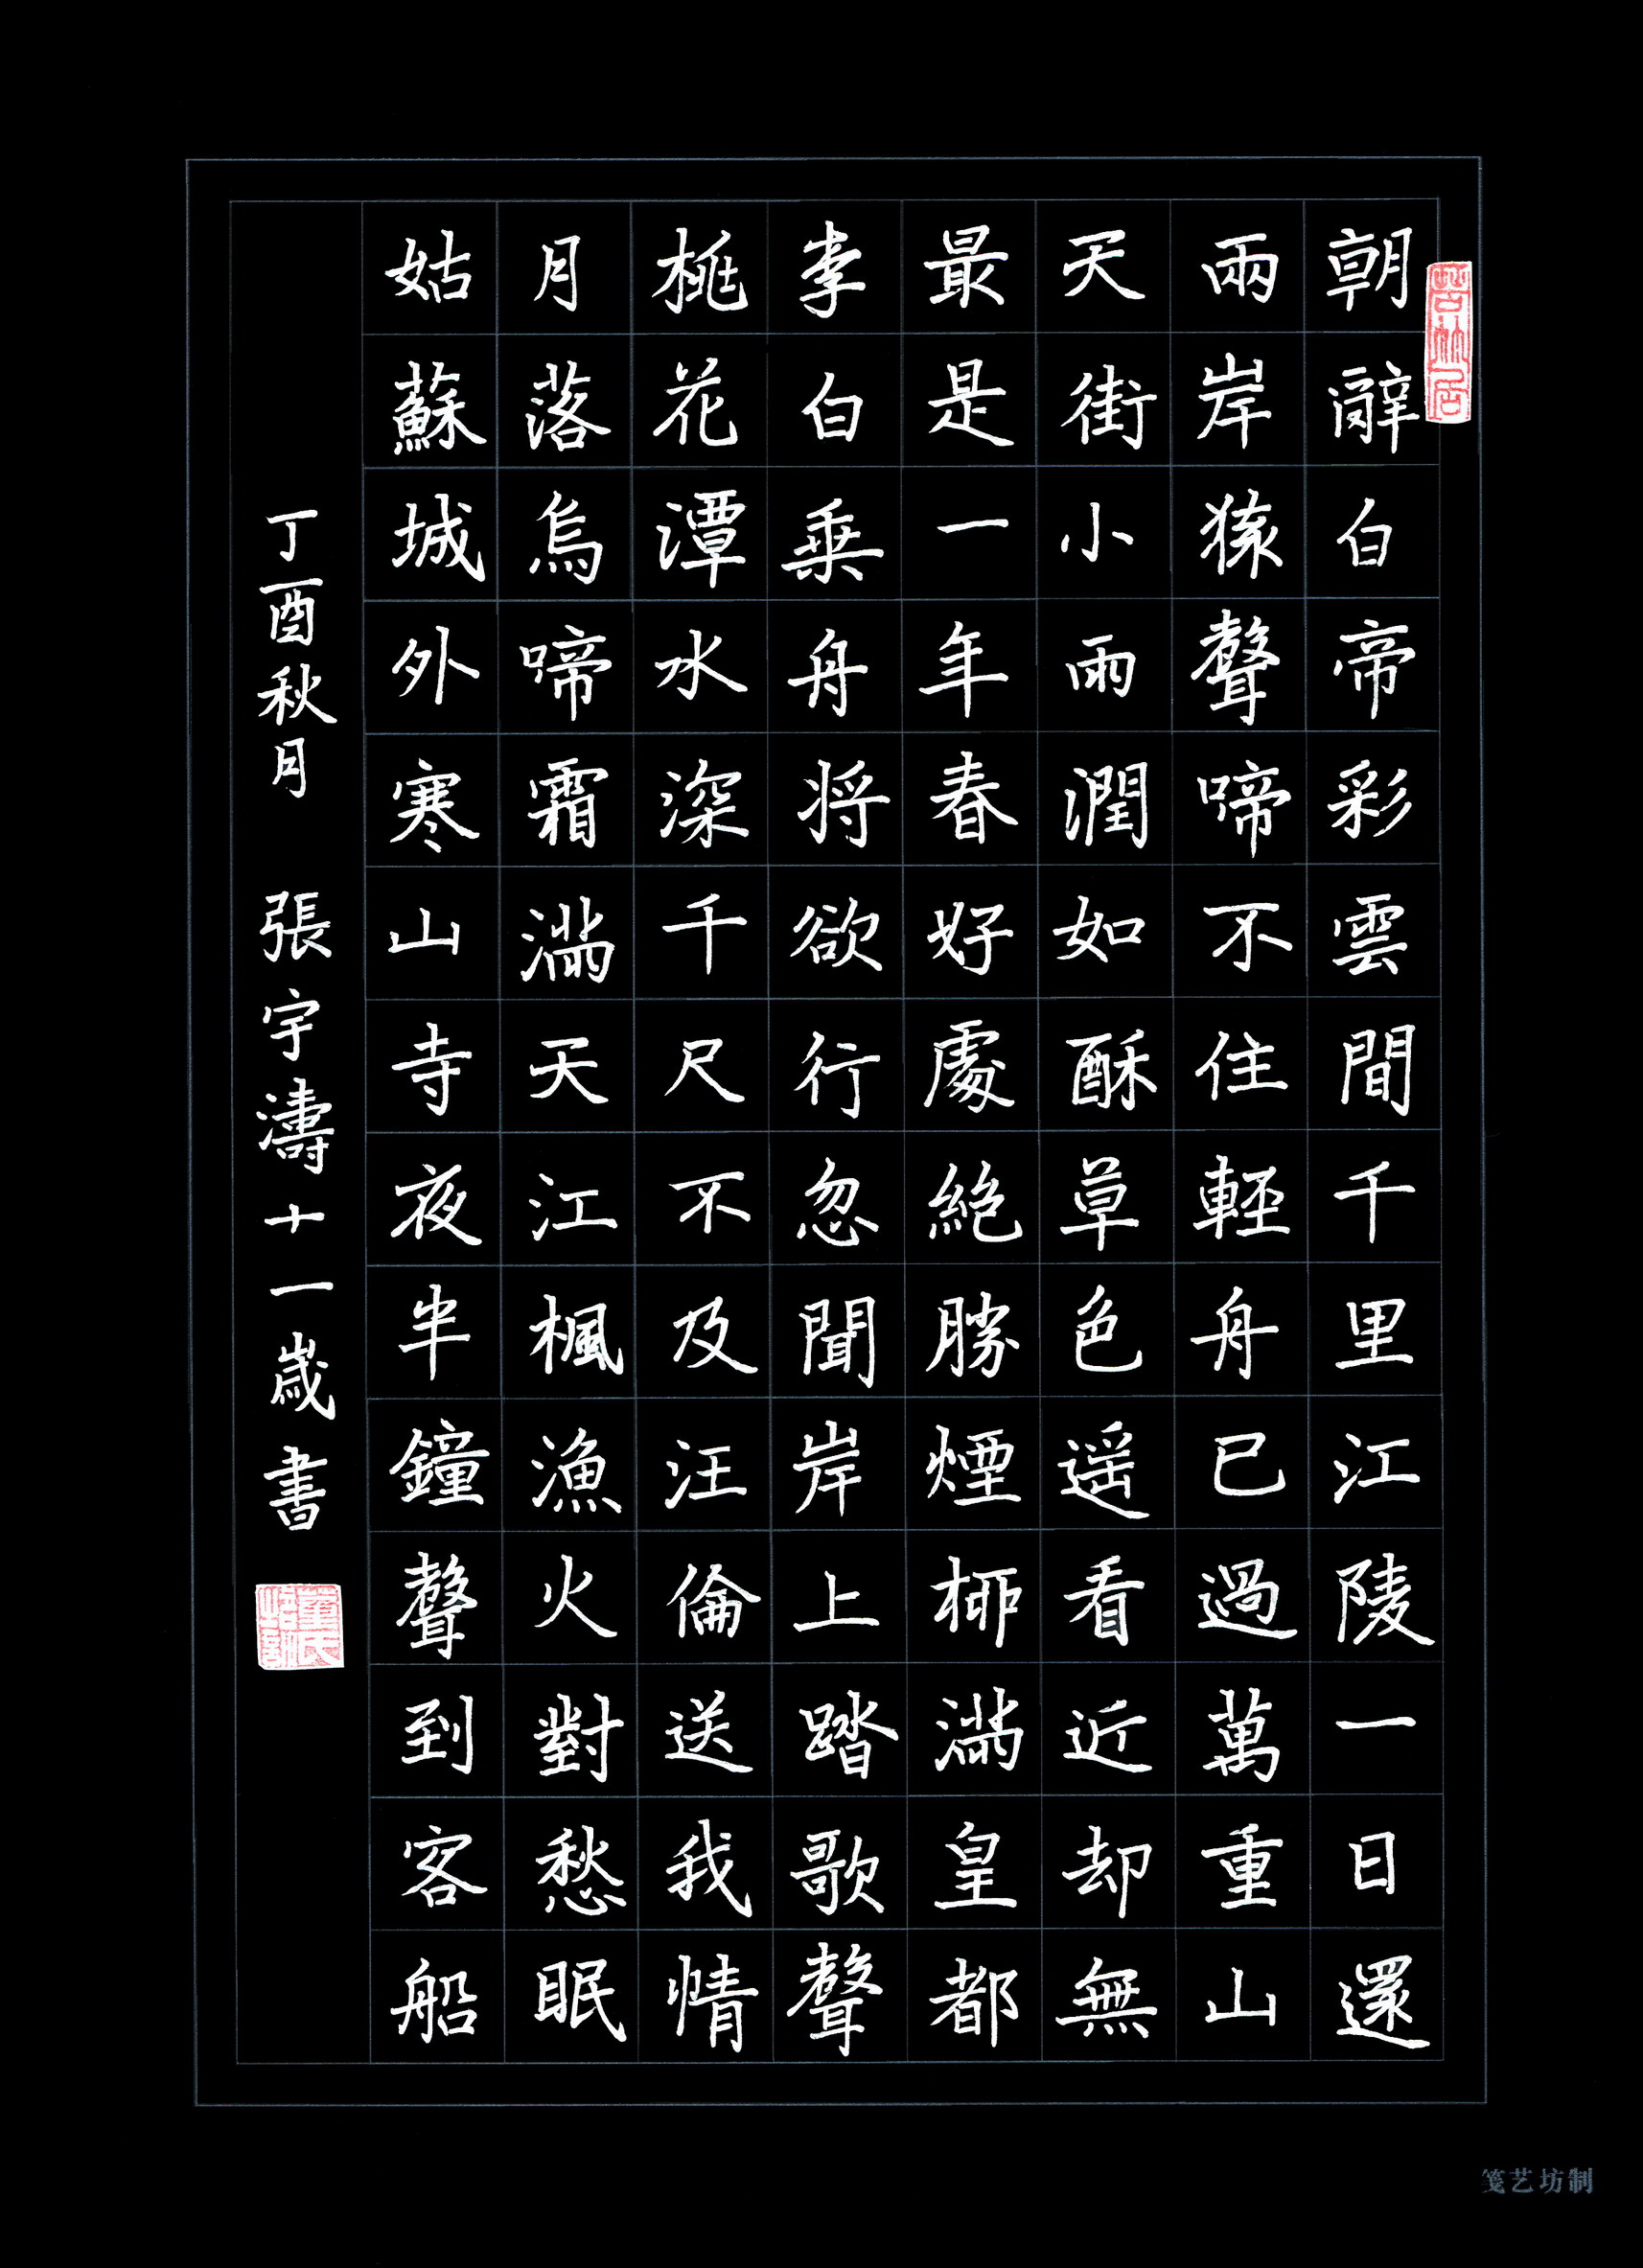 朝辭白帝彩雲間千里江陵一日還
兩岸猿聲啼不住輕舟已過萬重山
天街小雨潤如酥草色遥看近却無
最是一年春好處絶勝煙栁滿皇都
李白乗舟将欲行忽聞岸上踏歌聲
桃花潭水深千尺不及汪倫送我情
月落烏啼霜滿天江楓漁火對愁眠
姑蘇城外寒山寺夜半鐘聲到客船
丁酉秋月 張宇濤十一歲書
笺艺坊制